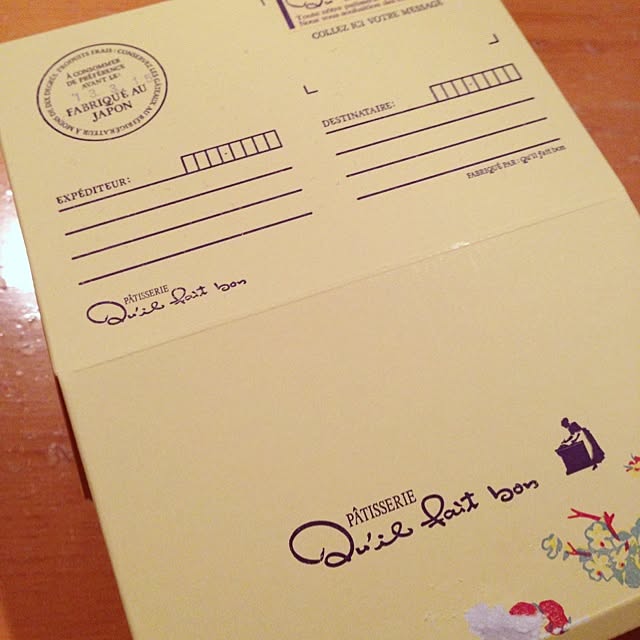 Toute notre
Nous vous souhaitons
COLLEZ ICI VOTRE MESSAGE
MOINS DE DIX DEGRÉS. PRODUITS FRAIS: CONSERVEZ LES GATEAUX AU RÉFRIGÉRATEUR À
À CONSOMMER
DE PRÉFÉRENCE
AVANT LE:
FABRIQUÉ AU
JAPON
EXPÉDITEUR:
DESTINATAIRE:
FABRIQUÉ PAR: Qu'il fait bon
PÂTISSERIE
Qu'il fait bon
PÂTISSERIE
Qu'il fait bon